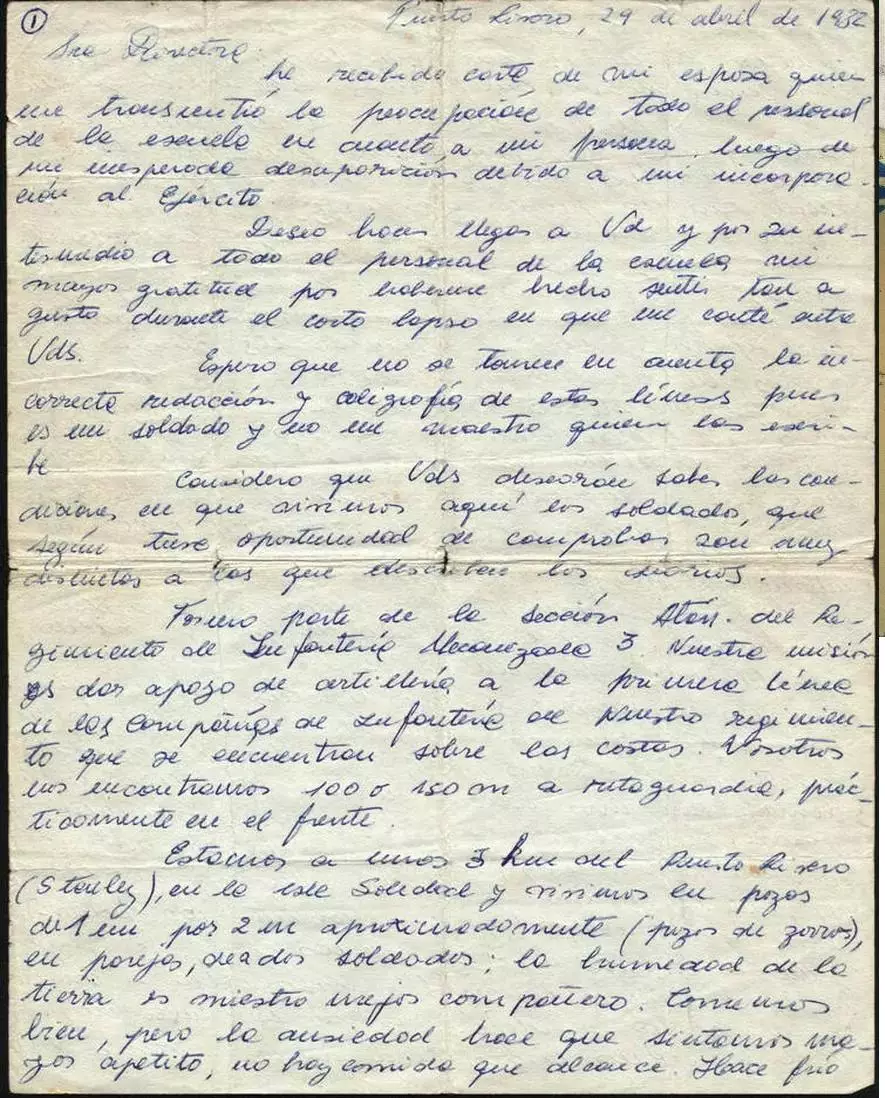 ①
Puerto Rivero, 29 de abril de 1982
Sra Directora
he recibido carta de mi esposa quien
me transmitió la preocupación de todo el personal
de la escuela en cuanto a mi persona luego de
mi inesperada desaparición debido a mi incorpora-
ción al Ejército.
Deseo hacer llegar a Vd y por su in-
termedio a todo el personal de la escuela mi
mayor gratitud por haberme hecho sentir tan a
gusto durante el corto lapso en que me conté entre
Vds.
Espero que no se tome en cuenta la in-
correcta redacción y caligrafía de estas líneas pues
es un soldado y no un maestro quien las escri-
be
Considero que Vds desearán saber las con-
diciones en que vivimos aquí los soldados, que
según tuve oportunidad de comprobar son muy
distintas a las que describen los diarios.
Formo parte de la sección del Re-
gimiento de Infantería Mecanizada 3. Nuestra misión
es dar apoyo de artillería a la primera línea
de las compañías de Infantería de Nuestro regimien-
to que se encuentran sobre las costas. Nosotros
nos encontramos 100 o 150 m a retaguardia, prác-
ticamente en el frente.
Estamos a unos 3 km del Puerto Rivero
(Stanley), en la isla Soledad y vivimos en pozos
de 1 m por 2 m aproximadamente (pozos de zorros),
en parejas, de a dos soldados; la humedad de la
tierra es nuestro mejor compañero. Comemos
bien, pero la ansiedad hace que sintamos ma-
yor apetito, no hay comida que alcance. Hace frío